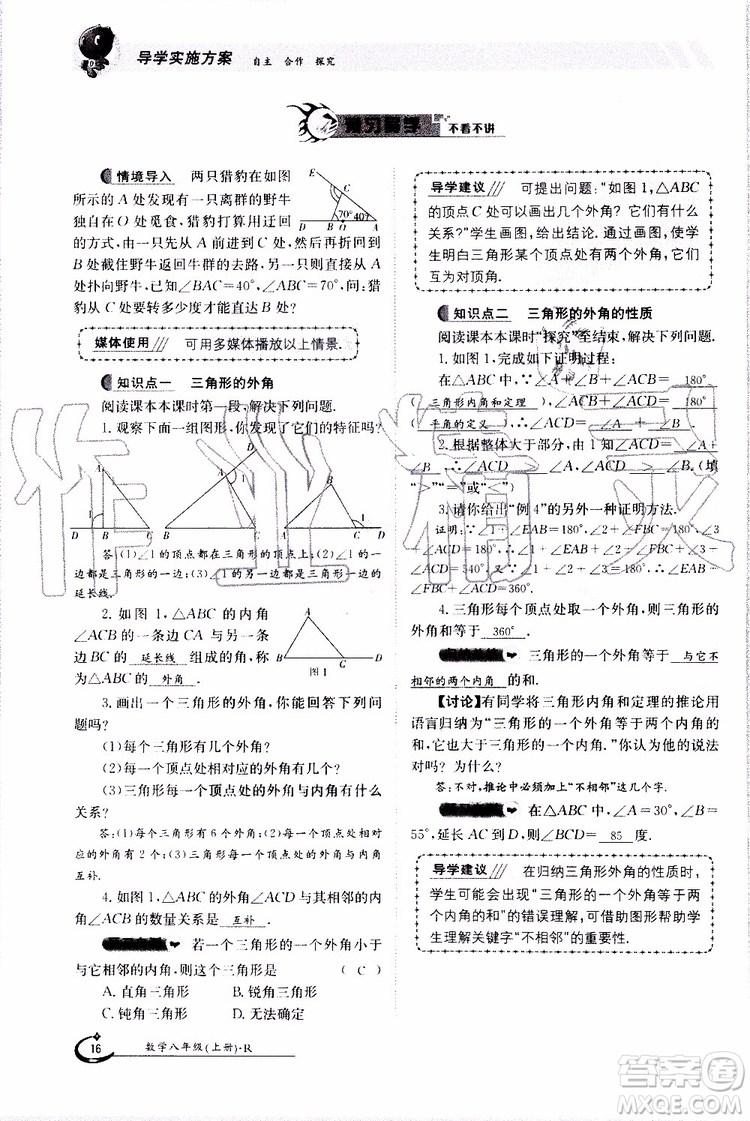 导学实施方案 自主 合作 探究
不看不讲
情境导入 两只猎豹在如图
所示的 A 处发现有一只野牛
独自在 O 处觅食,猎豹打算用迂回
的方式,由 A 处沿直线先跑到 B 处,然后再折回到 C
处截住野牛返回牛群的去路,另一猎豹再从 A
处扑向野牛.已知∠BAC=40°,∠ABC=70°.问:猎
豹从 C 处要转多少度才能直达 B 处?
E
C
70°
40°
D B O A
媒体使用 可用多媒体播放以上情景.
知识点一 三角形的外角
阅读课本本课时第一段,解决下列问题.
1. 观察下面一组图形,你发现了它们的特征吗?
A
1
D B C
D
A
1
B C
B
1
A C D
答:(1)∠1 的顶点都在三角形的顶点上;(2)∠1 的一
边都是三角形的一边;(3)∠1 的另一边都是三角形一边的
延长线.
2. 如图 1,△ABC 的内角
∠ACB 的一条边 CA 与另一条
边 BC 的 延长线 组成的角,称
为△ABC 的 外角 .
A
B C D
图 1
3. 画出一个三角形的外角,你能回答下列问
题吗?
(1)每个三角形有几个外角?
(2)每一个顶点处相对应的外角有几个?
(3)每一个顶点处的外角与内角有什么
关系?
答:(1)每个三角形有 6 个外角;(2)每一个顶点处相
对应的外角有 2 个;(3)每一个顶点处的外角与内角
互补.
4. 如图 1,△ABC 的外角∠ACD 与其相邻的内
角∠ACB 的数量关系是 互补 .
若一个三角形的外角小于
与它相邻的内角,则这个三角形是 ( C )
A. 直角三角形 B. 锐角三角形
C. 钝角三角形 D. 无法确定
导学建议 可提出问题:“如图 1,△ABC
的顶点 C 处可以画出几个外角?它们有什么
关系?”学生画图,给出结论.通过画图,使学
生明白三角形某个顶点处有两个外角,它们
互为对顶角.
知识点二 三角形的外角的性质
阅读课本本课时“探究”至结束,解决下列问题.
1. 如图 1,完成如下证明过程:
在△ABC 中,∵∠A+∠B+∠ACB= 180°
( 三角形内角和定理 ),∠ACD+∠ACB= 180°
( 平角的定义 ),∴∠ACD=∠ A +∠ B .
2. 根据整体大于部分,由 1 知∠ACD=∠A+
∠B ∴∠ACD > ∠A,∠ACD > ∠B.(填
“>”“=”或“<”)
3. 请你给出“例 4”的另一种证明方法.
证明:∵∠1+∠EAB=180°,∠2+∠CBF=180°,∠3+
∠ACD=180°,∴∠1+∠EAB+∠2+∠CBF+∠3+
∠ACD=540°,又∵∠1+∠2+∠3=180°,∴∠EAB+
∠CBF+∠ACD=360°.
4. 三角形每个顶点处取一个外角,则三角形的
外角和等于 360° .
三角形的一个外角等于 与它不
相邻的两个内角 的和.
【讨论】有同学将三角形内角和定理的推论用
语言归纳为“三角形的一个外角等于两个内角的
和”,“三角形的外角大于三角形的一个内角.”你认为他的说法
对吗?为什么?
答:不对,推论中必须加上“不相邻”这几个字.
在△ABC 中,∠A=30°,∠B=
55°,延长 AC 到 D,则∠BCD= 85 度.
导学建议 在归纳三角形外角的性质时,
学生可能会出现“三角形的一个外角等于两
个内角的和”的错误理解,可以借助图形帮助学
生理解关键字“不相邻”的重要性.
16 数学八年级(上册)-R
答案圈
MXQE.COM